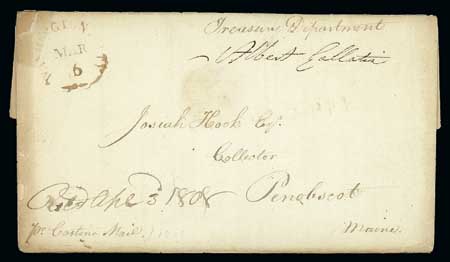 MAR
6
Treasury Department
Albert Gallatin
Josiah Hook Esq.
Collector
Penobscot
Maine.
Recd Apl 3 1808
pr Castine Mail